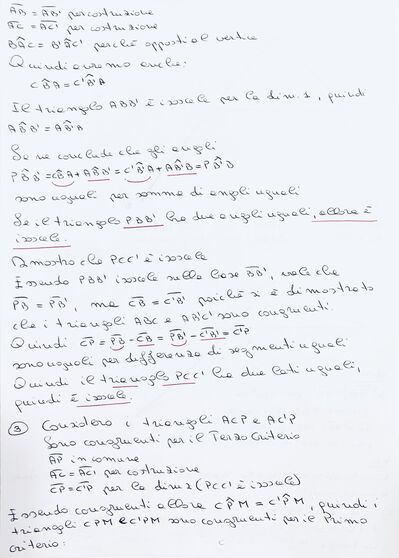 A̅B̅ = A̅B̅' per costruzione
A̅C̅ = A̅C̅' per costruzione
BÂC = B'ÂC' perché opposti al vertice
Quindi avremo anche:
CB̂A = C'B̂'A
Il triangolo ABB' è isoscele per la dim. 1, quindi
AB̂B' = AB̂'B
Se ne conclude che gli angoli
PB̂B' = CB̂A + AB̂B' = C'B̂'A + AB̂'B = PB̂'B
sono uguali per somma di angoli uguali
Se il triangolo PBB' ha due angoli uguali, allora è
isoscele.
Dimostro che PCC' è isoscele
Essendo PBB' isoscele sulla base B̅B̅', vale che
P̅B̅ = P̅B̅', ma C̅B̅ = C̅'B̅' poiché si è dimostrato
che i triangoli ABC e AB'C' sono congruenti.
Quindi C̅P̅ = P̅B̅ - C̅B̅ = P̅B̅' - C̅'B̅' = C̅'P̅
sono uguali per differenza di segmenti uguali
Quindi il triangolo PCC' ha due lati uguali,
quindi è isoscele.
③ Considero i triangoli ACP e AC'P
Sono congruenti per il Terzo Criterio
A̅P̅ in comune
A̅C̅ = A̅C̅' per costruzione
C̅P̅ = C̅'P̅ per la dim 2 (PCC' è isoscele)
Essendo congruenti allora CP̂M = C'P̂M, quindi i
triangoli CPM e C'PM sono congruenti per il Primo
Criterio: